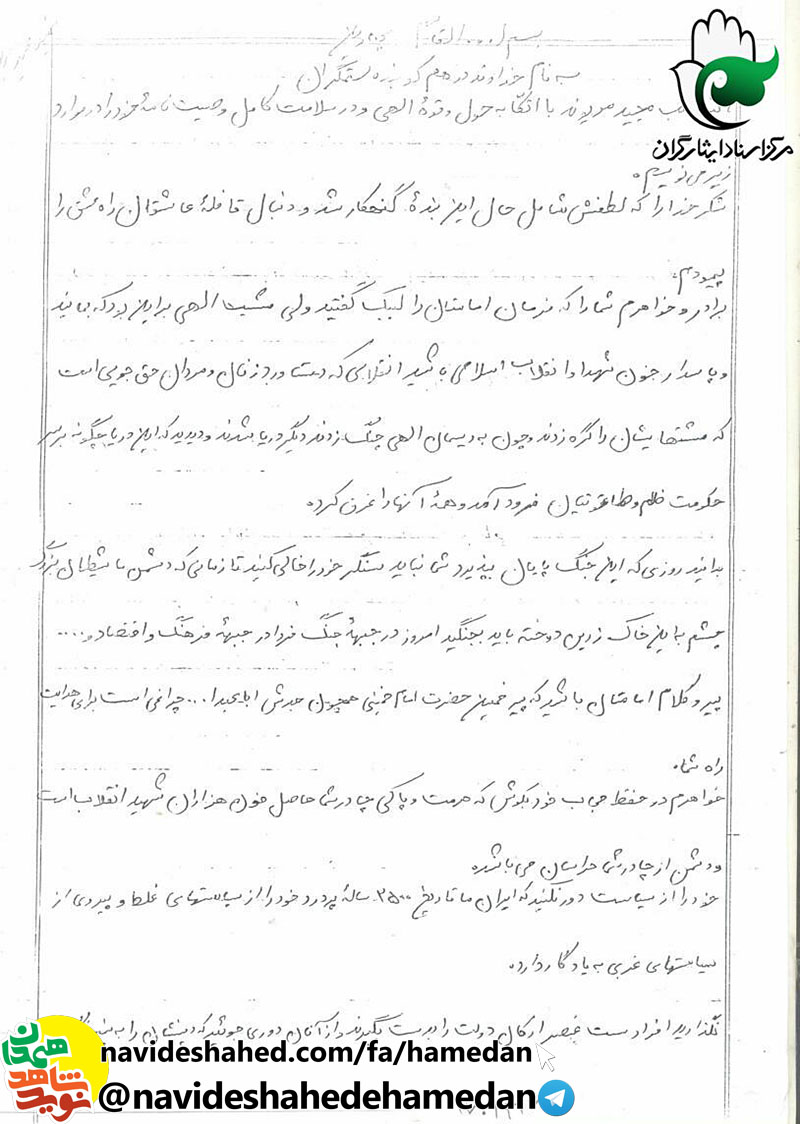 بسم الله القاصم الجبارین
به نام خداوند در هم کوبنده ستمگران
مجید با اتکا به حول و قوهٔ الهی و در سلامت کامل وصیت نامهٔ خود را در موارد
زیر می نویسم.
شکر خدا را که لطفش شامل حال این بندهٔ گنهکار شد و دنبال قافلهٔ عاشقان راه عشق را
پیمودم.
برادر و خواهرم شما را که فرمان امامتان را لبیک گفتید ولی مشیت الهی بر این بود که بمانید
و پاسدار خون شهدا و انقلاب اسلامی باشید انقلابی که دستاورد زنان و مردان حق جویی است
که مشتهایشان را گره زدند و چون به ریسمان الهی چنگ زدند دیگر دریا شدند و دیدید که این دریا چگونه بر سر
حکومت ظلم و طاغوتیان فرود آمد و همهٔ آنها را غرق کرد.
بدانید روزی که این جنگ پایان بپذیرد شما نباید سنگر خود را خالی کنید تا زمانی که دشمن ما شیطان بزرگ
چشم به این خاک زرین دوخته باید بجنگید امروز در جبههٔ جنگ فردا در جبههٔ فرهنگ و اقتصاد و ....
پیرو کلام امامتان باشید که پیر خمین حضرت امام خمینی همچون جدش اباعبدا... چراغی است برای هدایت
راه شما.
خواهرم در حفظ حجاب خود بکوش که حرمت و پاکی چادر شما حاصل خون هزاران شهید انقلاب است
و دشمن از چادر شما هراسان می باشد.
خود را از سیاست دور نکنید که ایران ما تاریخ ۲۵۰۰ سالهٔ پر درد خود را از سیاستهای غلط و پیروی از
سیاستهای غربی به یادگار دارد.
نگذارید افراد سست عنصر ارکان دولت را بدست بگیرند و از آنان دوری جوئید که دینشان را به
مرکز اسناد ایثارگران
نوید شاهد همدان
navideshahed.com/fa/hamedan
@navideshahedehamedan